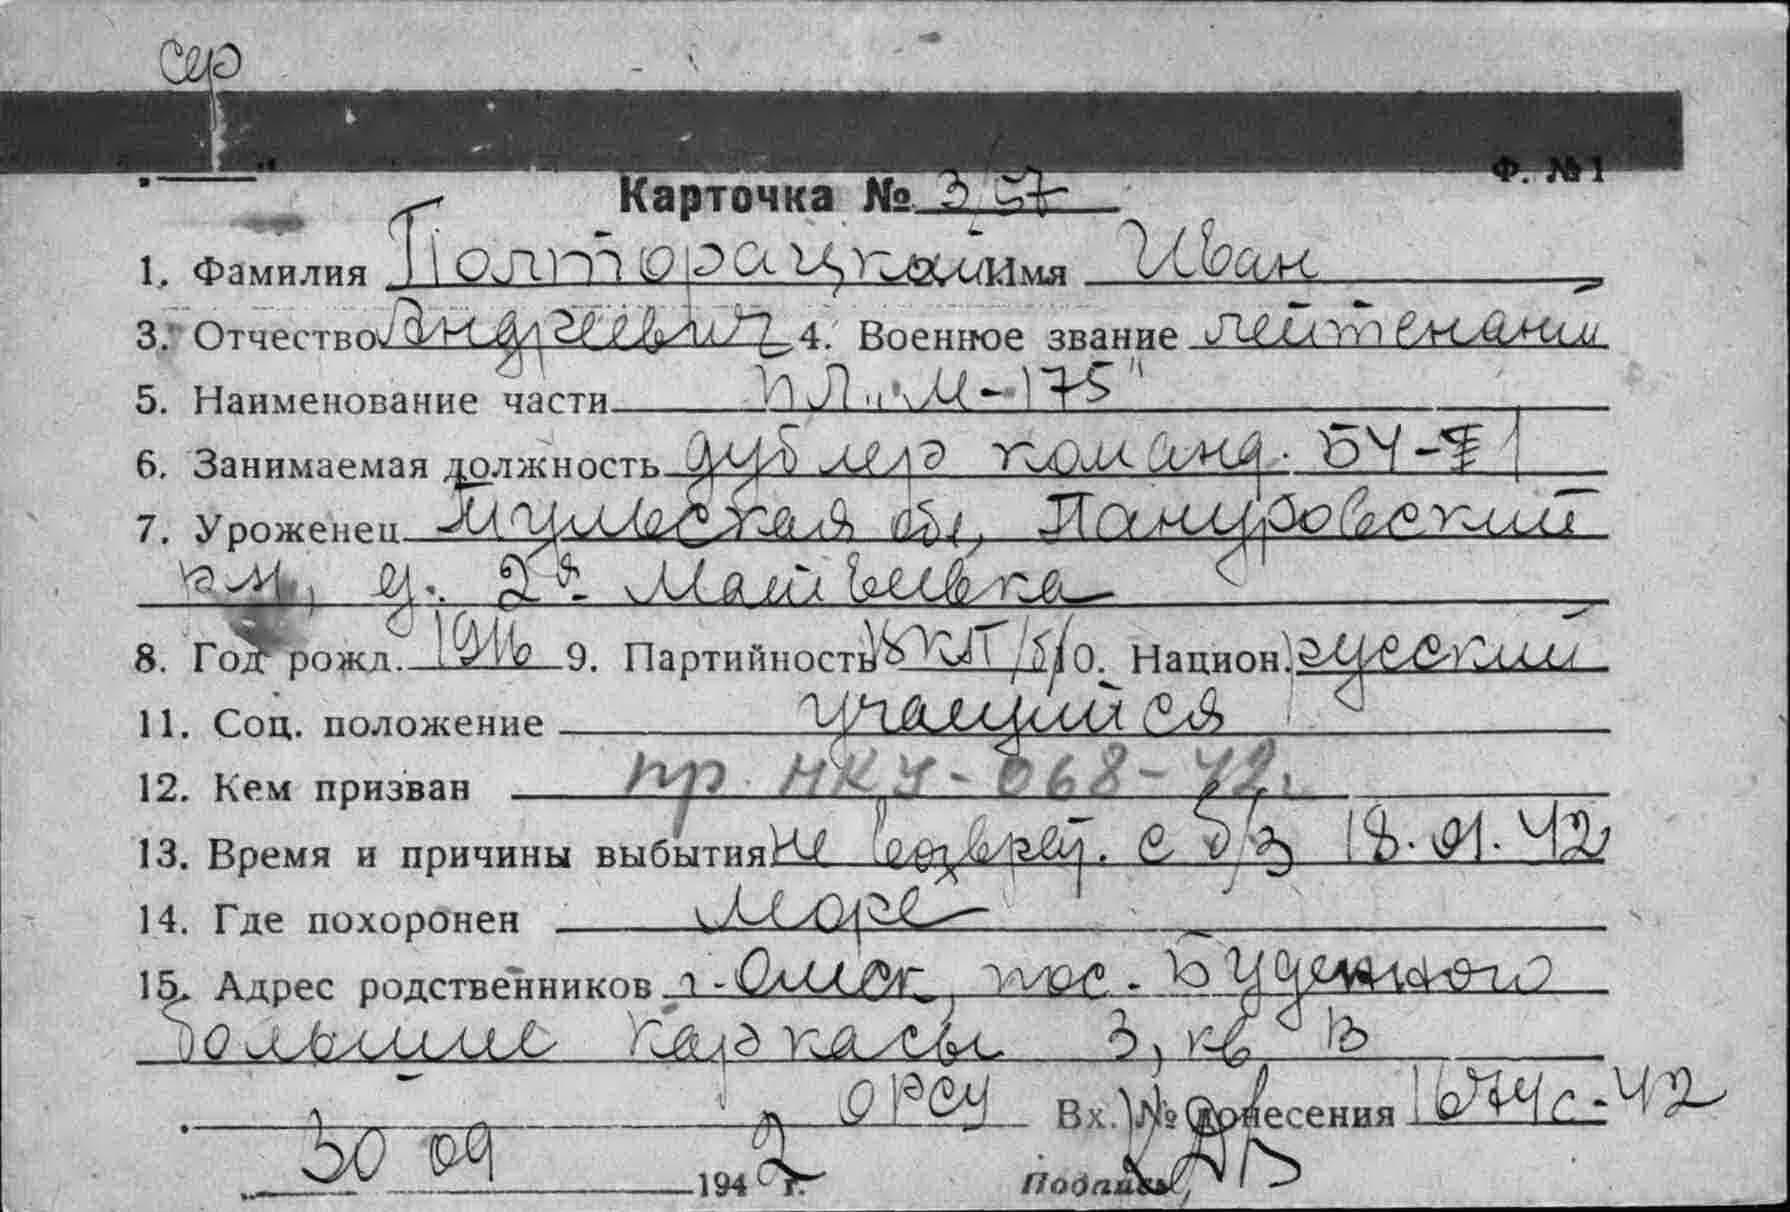 сер
Ф. №1
Карточка № 357
1. Фамилия Полторацкой Имя Иван
3. Отчество Андреевич 4. Военное звание лейтенант
5. Наименование части ПЛ „М-175"
6. Занимаемая должность дублер команд. БЧ-1
7. Уроженец Тульская обл, Пануровский
рн, д. 2я Матвеевка
8. Год рожд. 1916 9. Партийность ВКП/б/ 10. Национ. русский
11. Соц. положение учащийся
12. Кем призван пр. НКУ-068-42г.
13. Время и причины выбытия не возврат. с б/з 18.01.42
14. Где похоронен море
15. Адрес родственников г. Омск, пос. Буденного
большие каркасы 3, кв В
ОРСУ Вх. № донесения 1674с-42
30 09 1942 г. Подпись